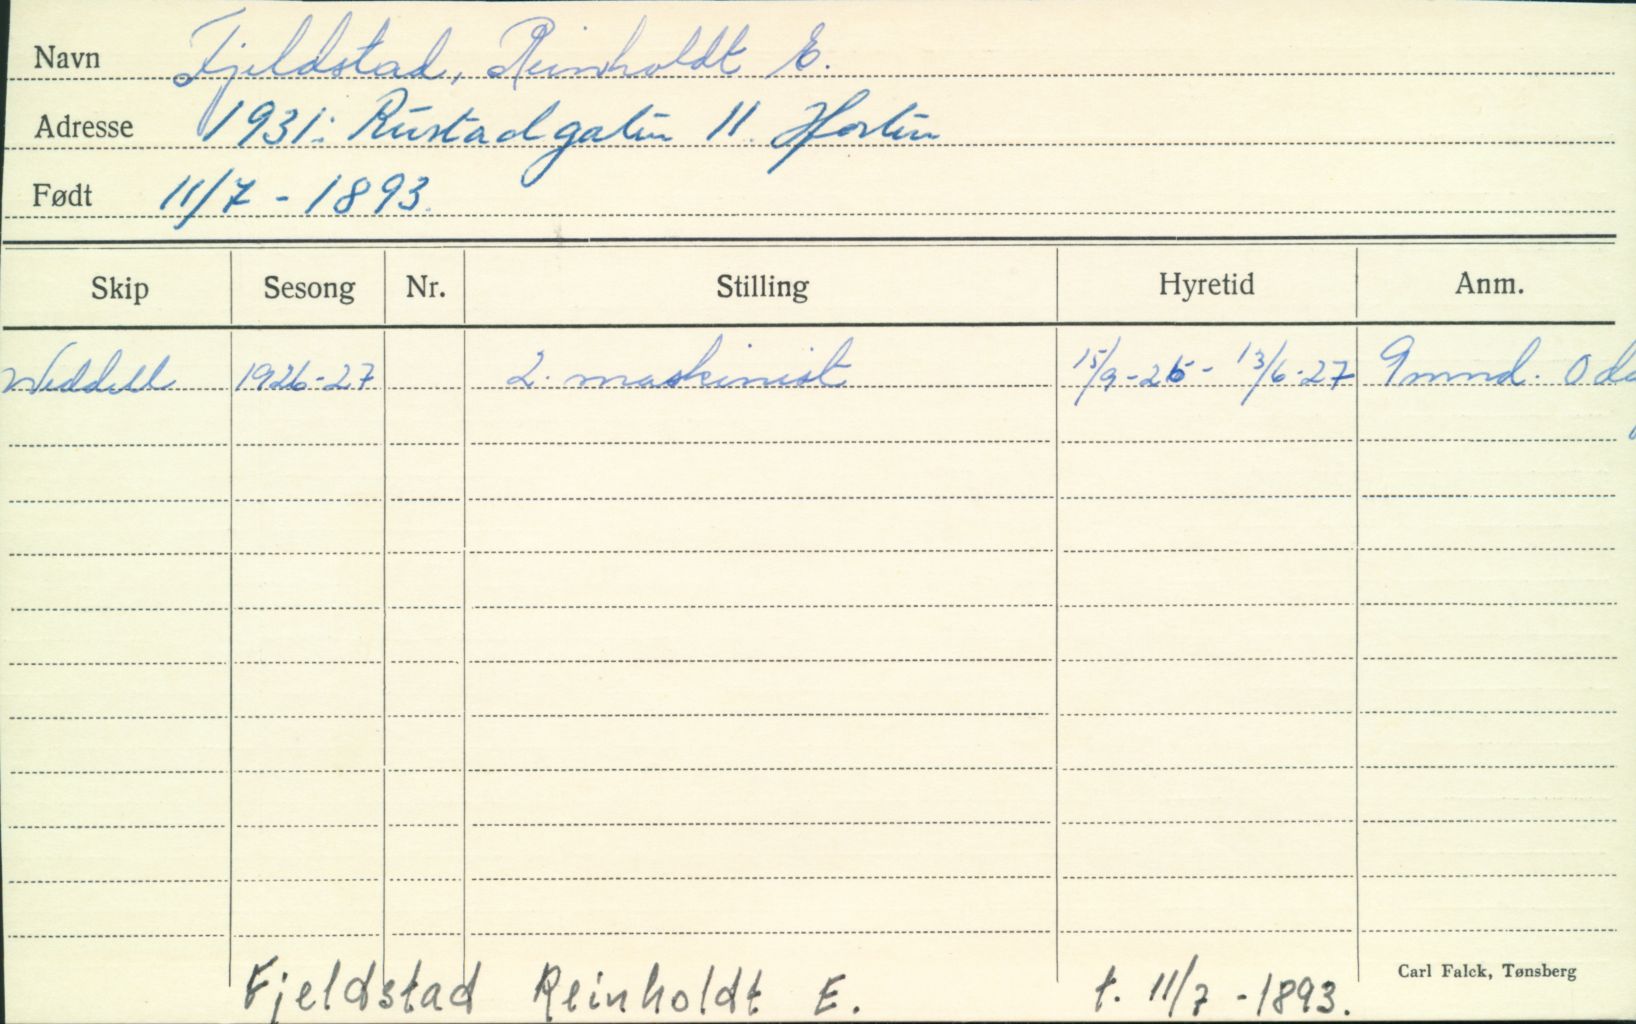 Navn Fjeldstad, Reinholdt E.
Adresse 1931: Rustadgaten 11. Horten
Født 11/7 - 1893.
Skip Sesong Nr. Stilling Hyretid Anm.
Weddell 1926-27 2. maskinist 15/9-26- 13/6-27 9 mnd. 0 dg
Fjeldstad Reinholdt E. f. 11/7 - 1893.
Carl Falck, Tønsberg